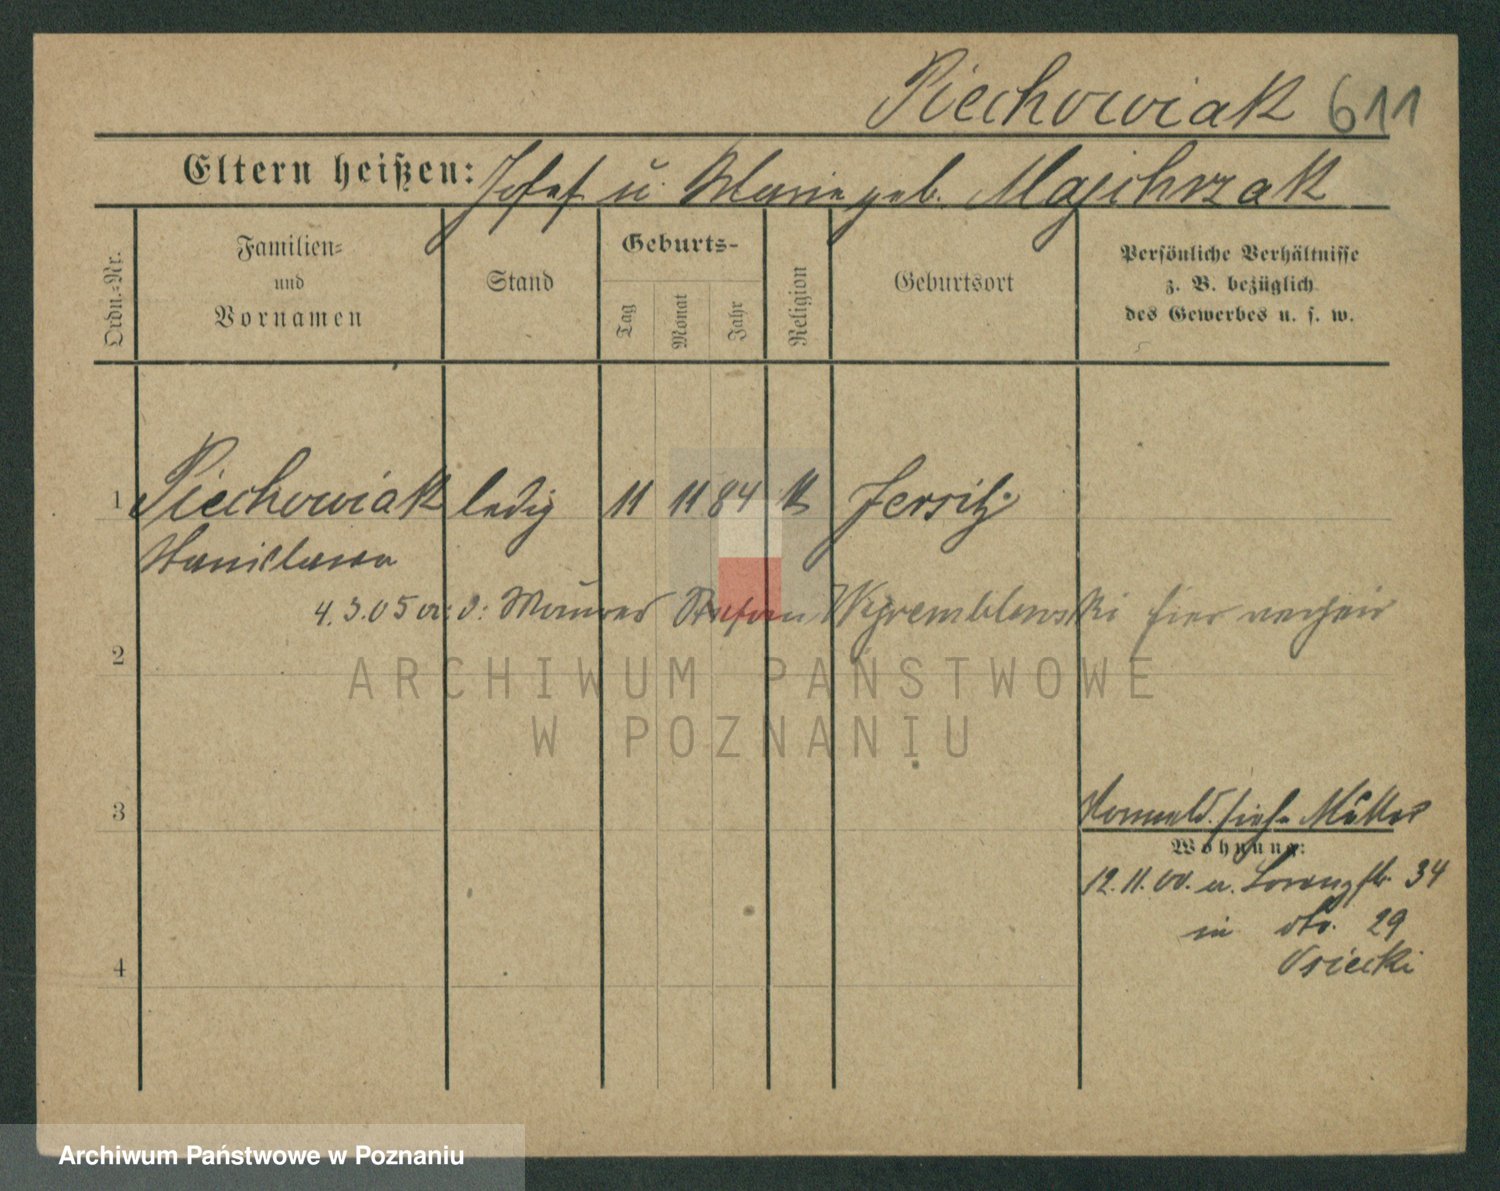 Piechowiak 611
Eltern heißen: Josef u. Marie geb. Majchrzak
Ordn.-Nr.
Familien- und Vornamen
Stand
Geburts-
Tag
Monat
Jahr
Religion
Geburtsort
Persönliche Verhältnisse
z. B. bezüglich
des Gewerbes u. s. w.
1 Piechowiak ledig 11 11 84 k Jersitz
Stanislawa
4.3.05 Maurer Stefan hier
2
ARCHIWUM PAŃSTWOWE
W POZNANIU
3
siehe Mutter
Wohnung:
12.11.00. u. Lorenzstr. 34
in dto. 29
Osiecki
4
Archiwum Państwowe w Poznaniu